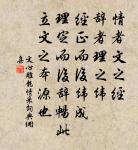 情者文之经
辞者理之纬
经正而后纬成
理定而后辞畅此
立文之本源也
文心雕龙情采词典网
集